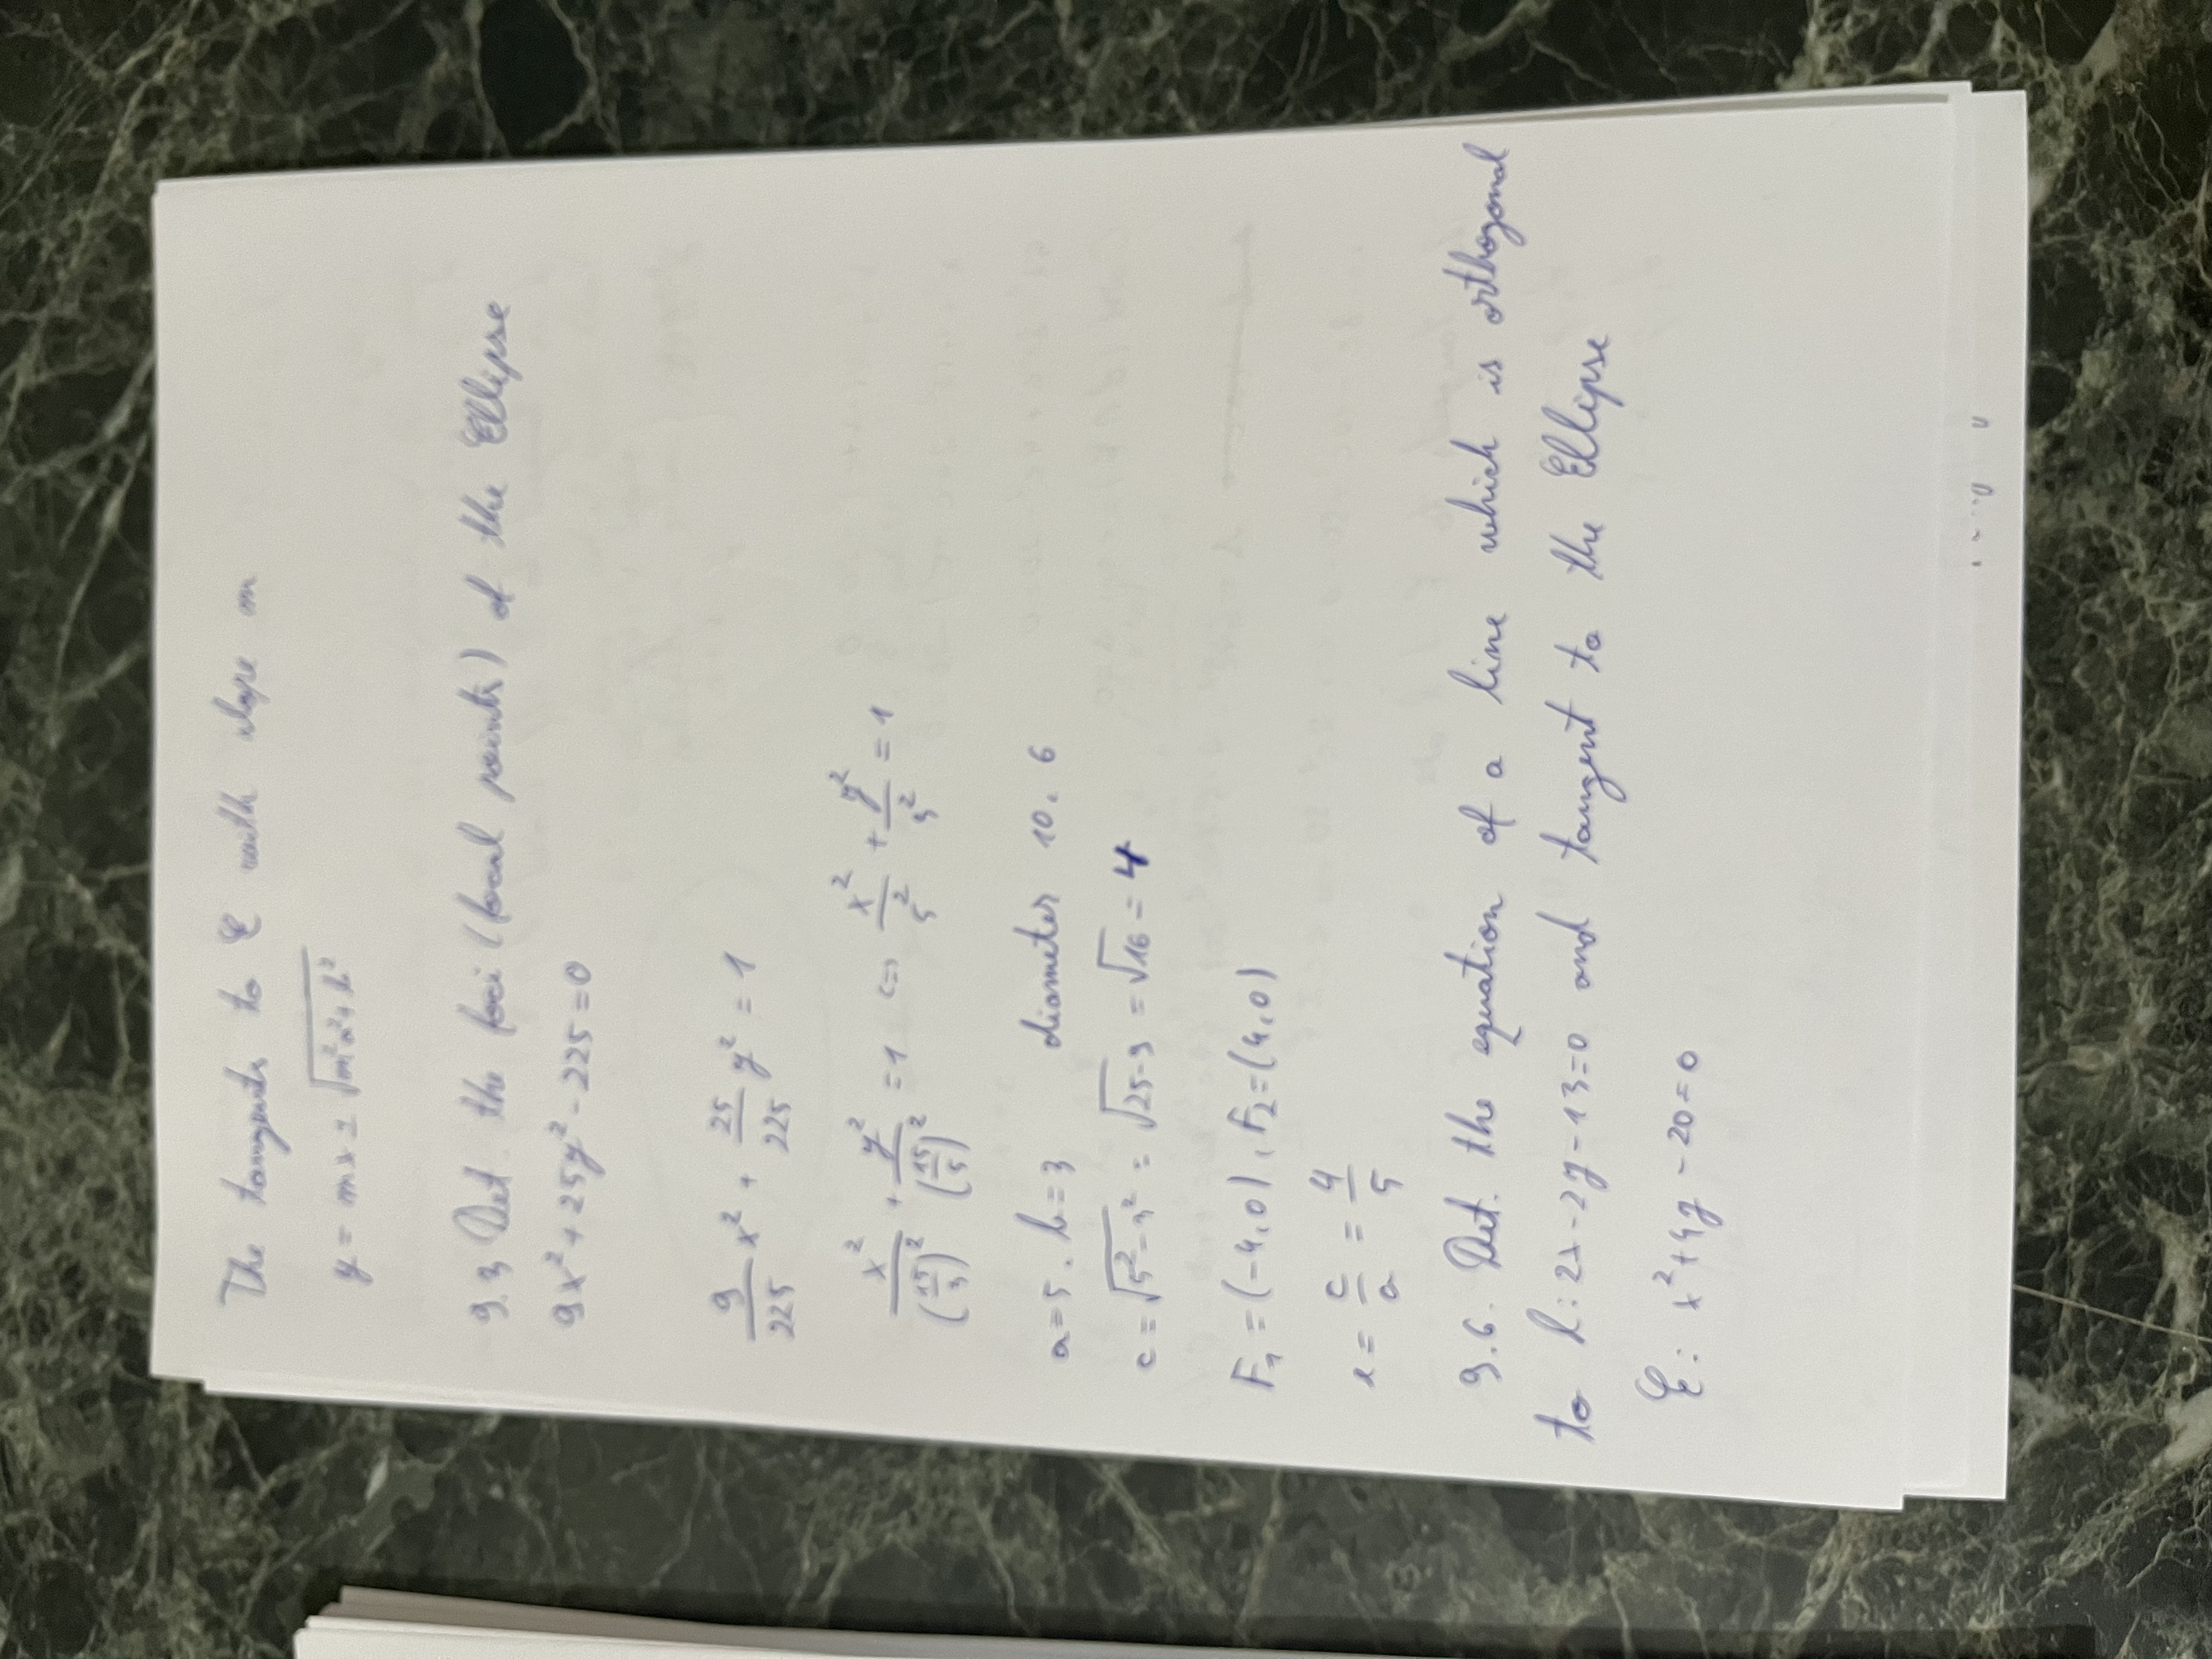 The tangents to E with slope m
y = mx ± √(m²a² + b²)
9.3 Det. the foci (focal points) of the Ellipse
9x² + 25y² - 225 = 0
9/225 x² + 25/225 y² = 1
x²/(15/3)² + y²/(15/5)² = 1 <=> x²/5² + y²/3² = 1
a = 5, b = 3 diameter 10, 6
c = √(5² - 3²) = √(25-9) = √16 = 4
F₁ = (-4,0), F₂ = (4,0)
e = c/a = 4/5
9.6. Det. the equation of a line which is orthogonal
to l: 2x - 2y - 13 = 0 and tangent to the Ellipse
E: x² + 4y - 20 = 0